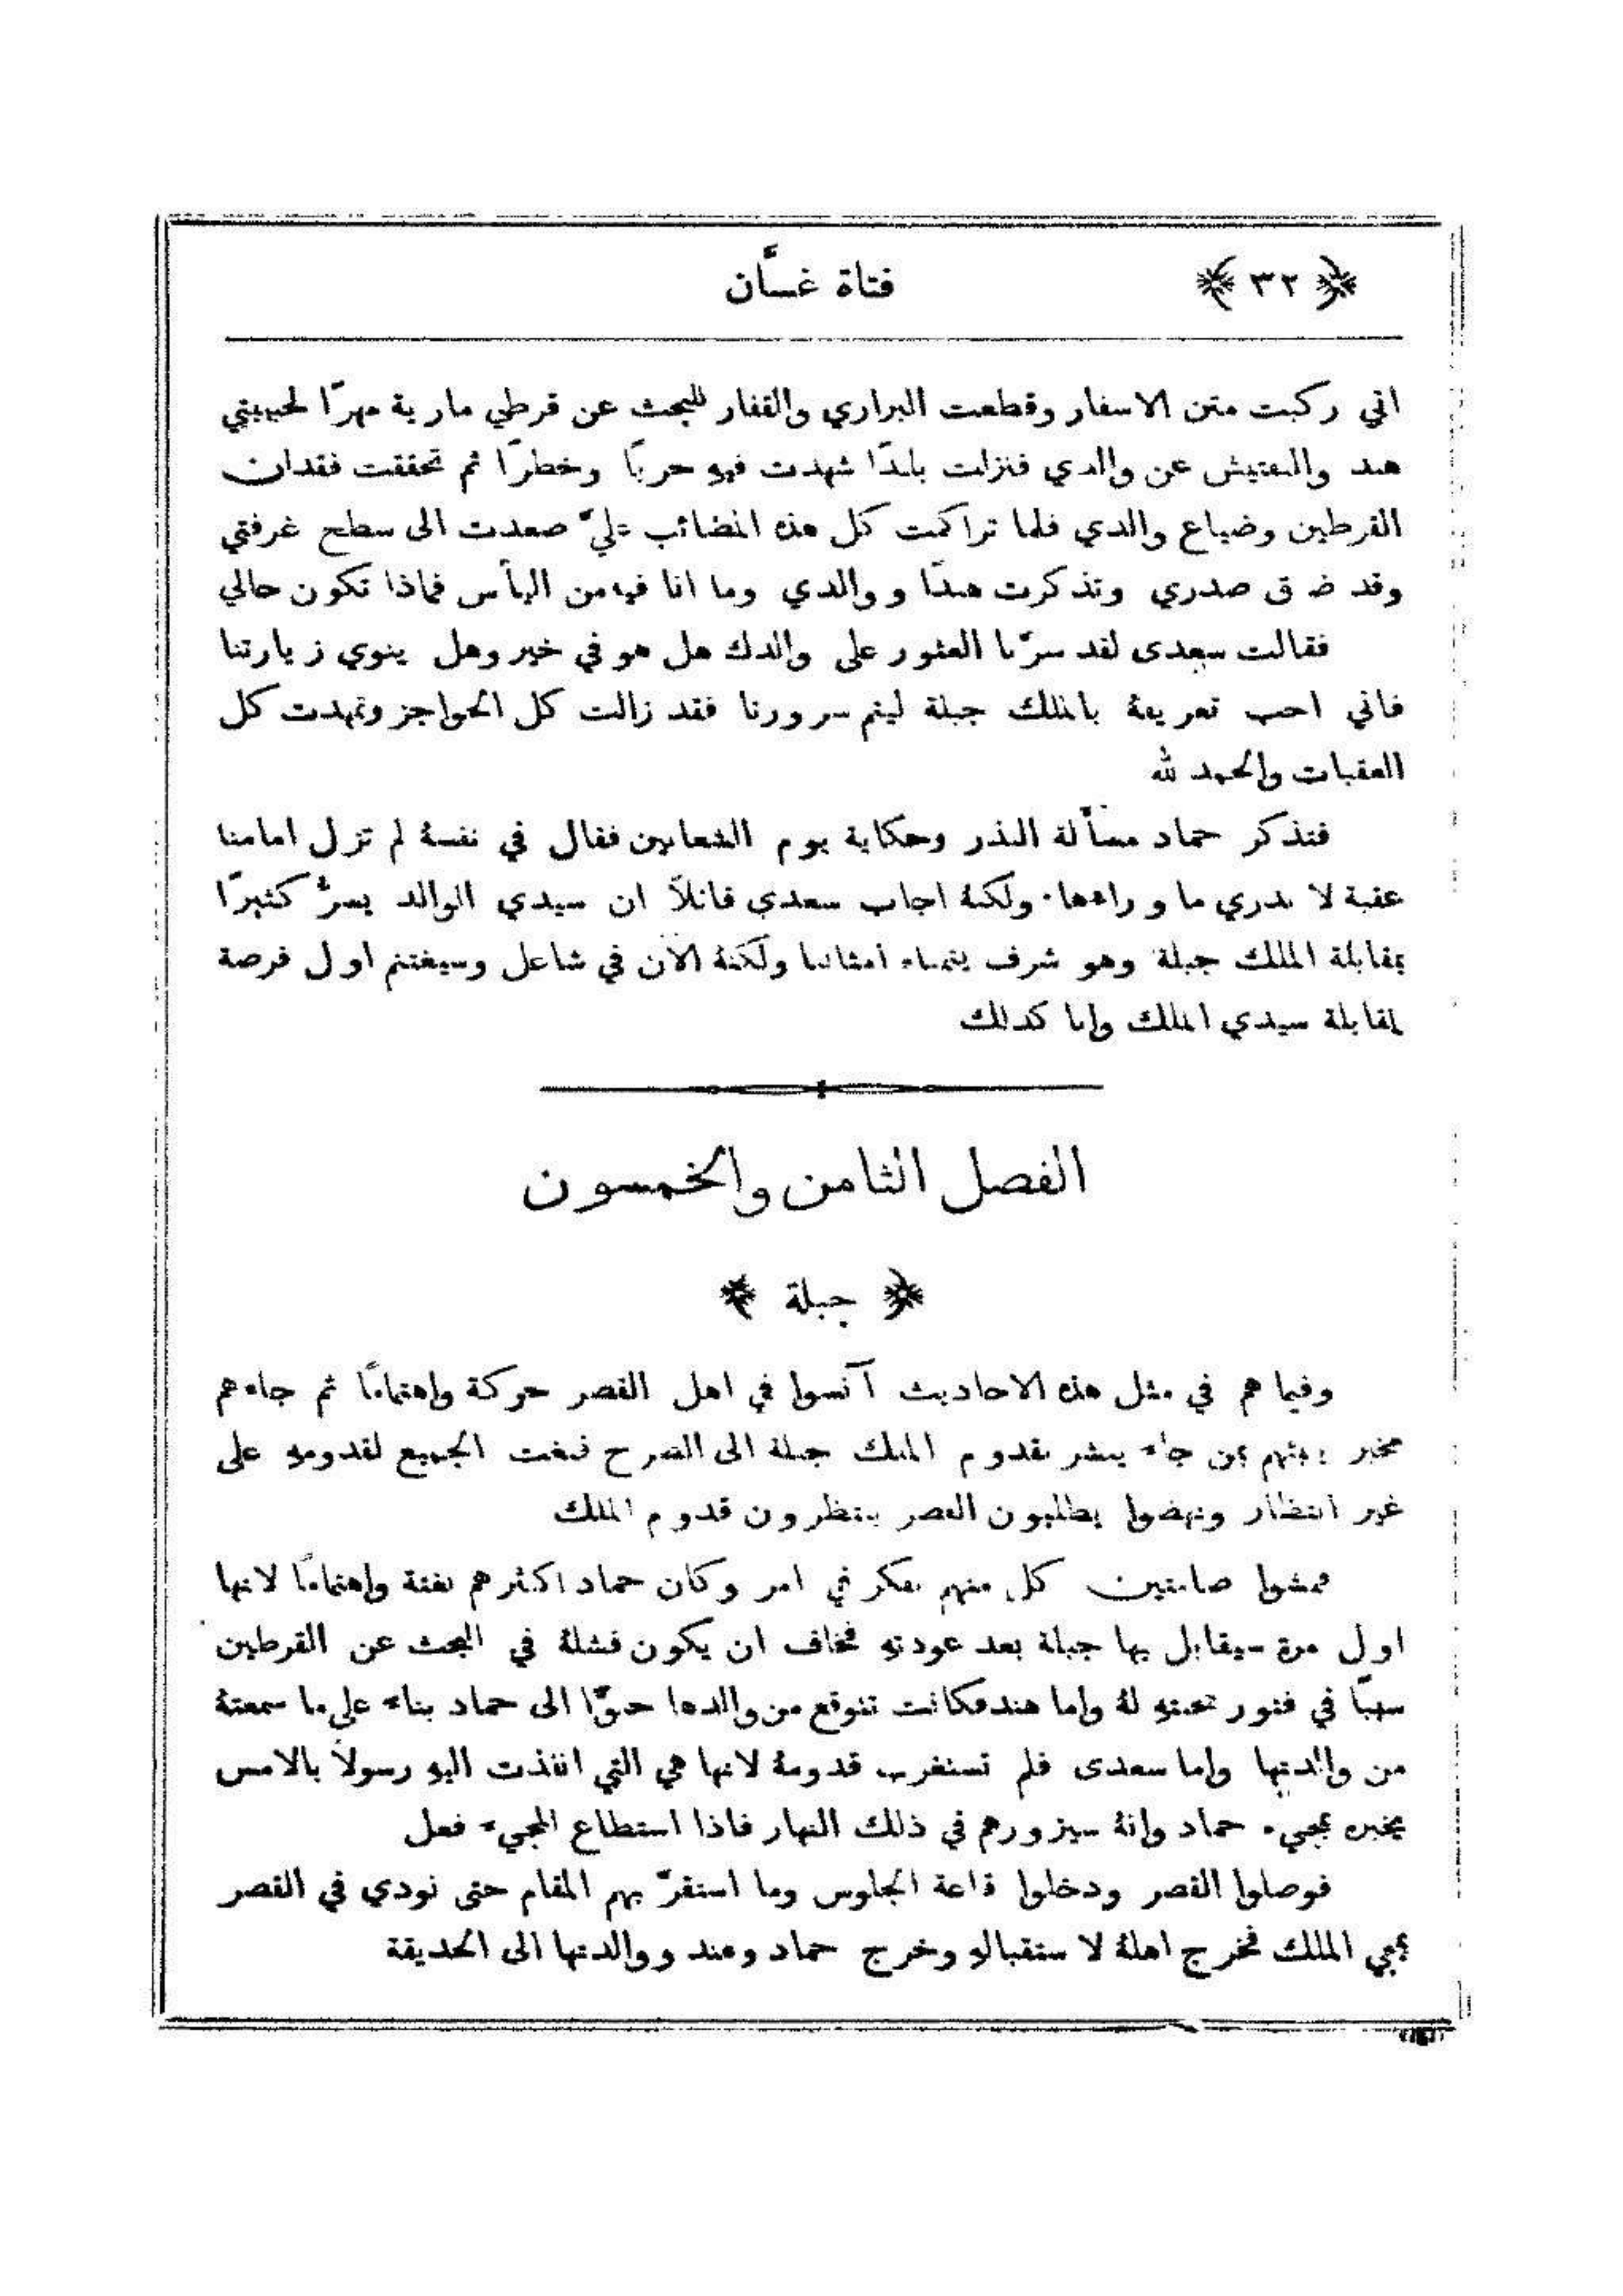 ﴿ ٣٢ ﴾ فتاة غسَّان
اني ركبت متن الاسفار وقطعت البراري والقفار للبحث عن قرطي مارية مهرًا لحبيبتي
هند والتفتيش عن والدي فنزلت بلدًا شهدت فيهِ حربًا وخطرًا ثم تحققت فقدان
القرطين وضياع والدي فلما تراكمت كل هذه المصائب عليَّ صعدت الى سطح غرفتي
وقد ضاق صدري وتذكرت هندًا ووالدي وما انا فيهِ من اليأس فماذا تكون حالي
فقالت سعدى لقد سرَّنا العثور على والدك هل هو في خير وهل ينوي زيارتنا
فاني احب تعريفهُ بالملك جبلة ليتم سرورنا فقد زالت كل الحواجز وتمهدت كل
العقبات والحمد لله
فتذكر حماد مسألة النذر وحكاية يوم الشعانين فقال في نفسهُ لم تزل امامنا
عقبة لا ندري ما وراءها. ولكنهُ اجاب سعدى قائلاً ان سيدي الوالد يسرُّ كثيرًا
بمقابلة الملك جبلة وهو شرف يتمناه امثالنا ولكنهُ الآن في شاغل وسيغتنم اول فرصة
لمقابلة سيدي الملك وانا كذلك
الفصل الثامن والخمسون
﴿ جبلة ﴾
وفيما هم في مثل هذه الاحاديث آنسوا في اهل القصر حركة واهتمامًا ثم جاءهم
مخبر ينبئهم بمن جاء يبشر بقدوم الملك جبلة الى الصرح فبغت الجميع لقدومهِ على
غير انتظار ونهضوا يطلبون القصر ينتظرون قدوم الملك
فمشوا صامتين كل منهم يفكر في امر وكان حماد اكثرهم بغتة واهتمامًا لانها
اول مرة سيقابل بها جبلة بعد عودتهِ فخاف ان يكون فشلهُ في البحث عن القرطين
سببًا في فتور محبتهِ لهُ واما هند فكانت تتوقع من والدها حنوًّا الى حماد بناءً على ما سمعتهُ
من والدتها واما سعدى فلم تستغرب قدومهُ لانها هي التي انفذت اليهِ رسولاً بالامس
يخبره بمجيء حماد وانهُ سيزورهم في ذلك النهار فاذا استطاع المجيء فعل
فوصلوا القصر ودخلوا قاعة الجلوس وما استقرَّ بهم المقام حتى نودي في القصر
بمجي الملك فخرج اهلهُ لاستقبالهِ وخرج حماد وهند ووالدتها الى الحديقة